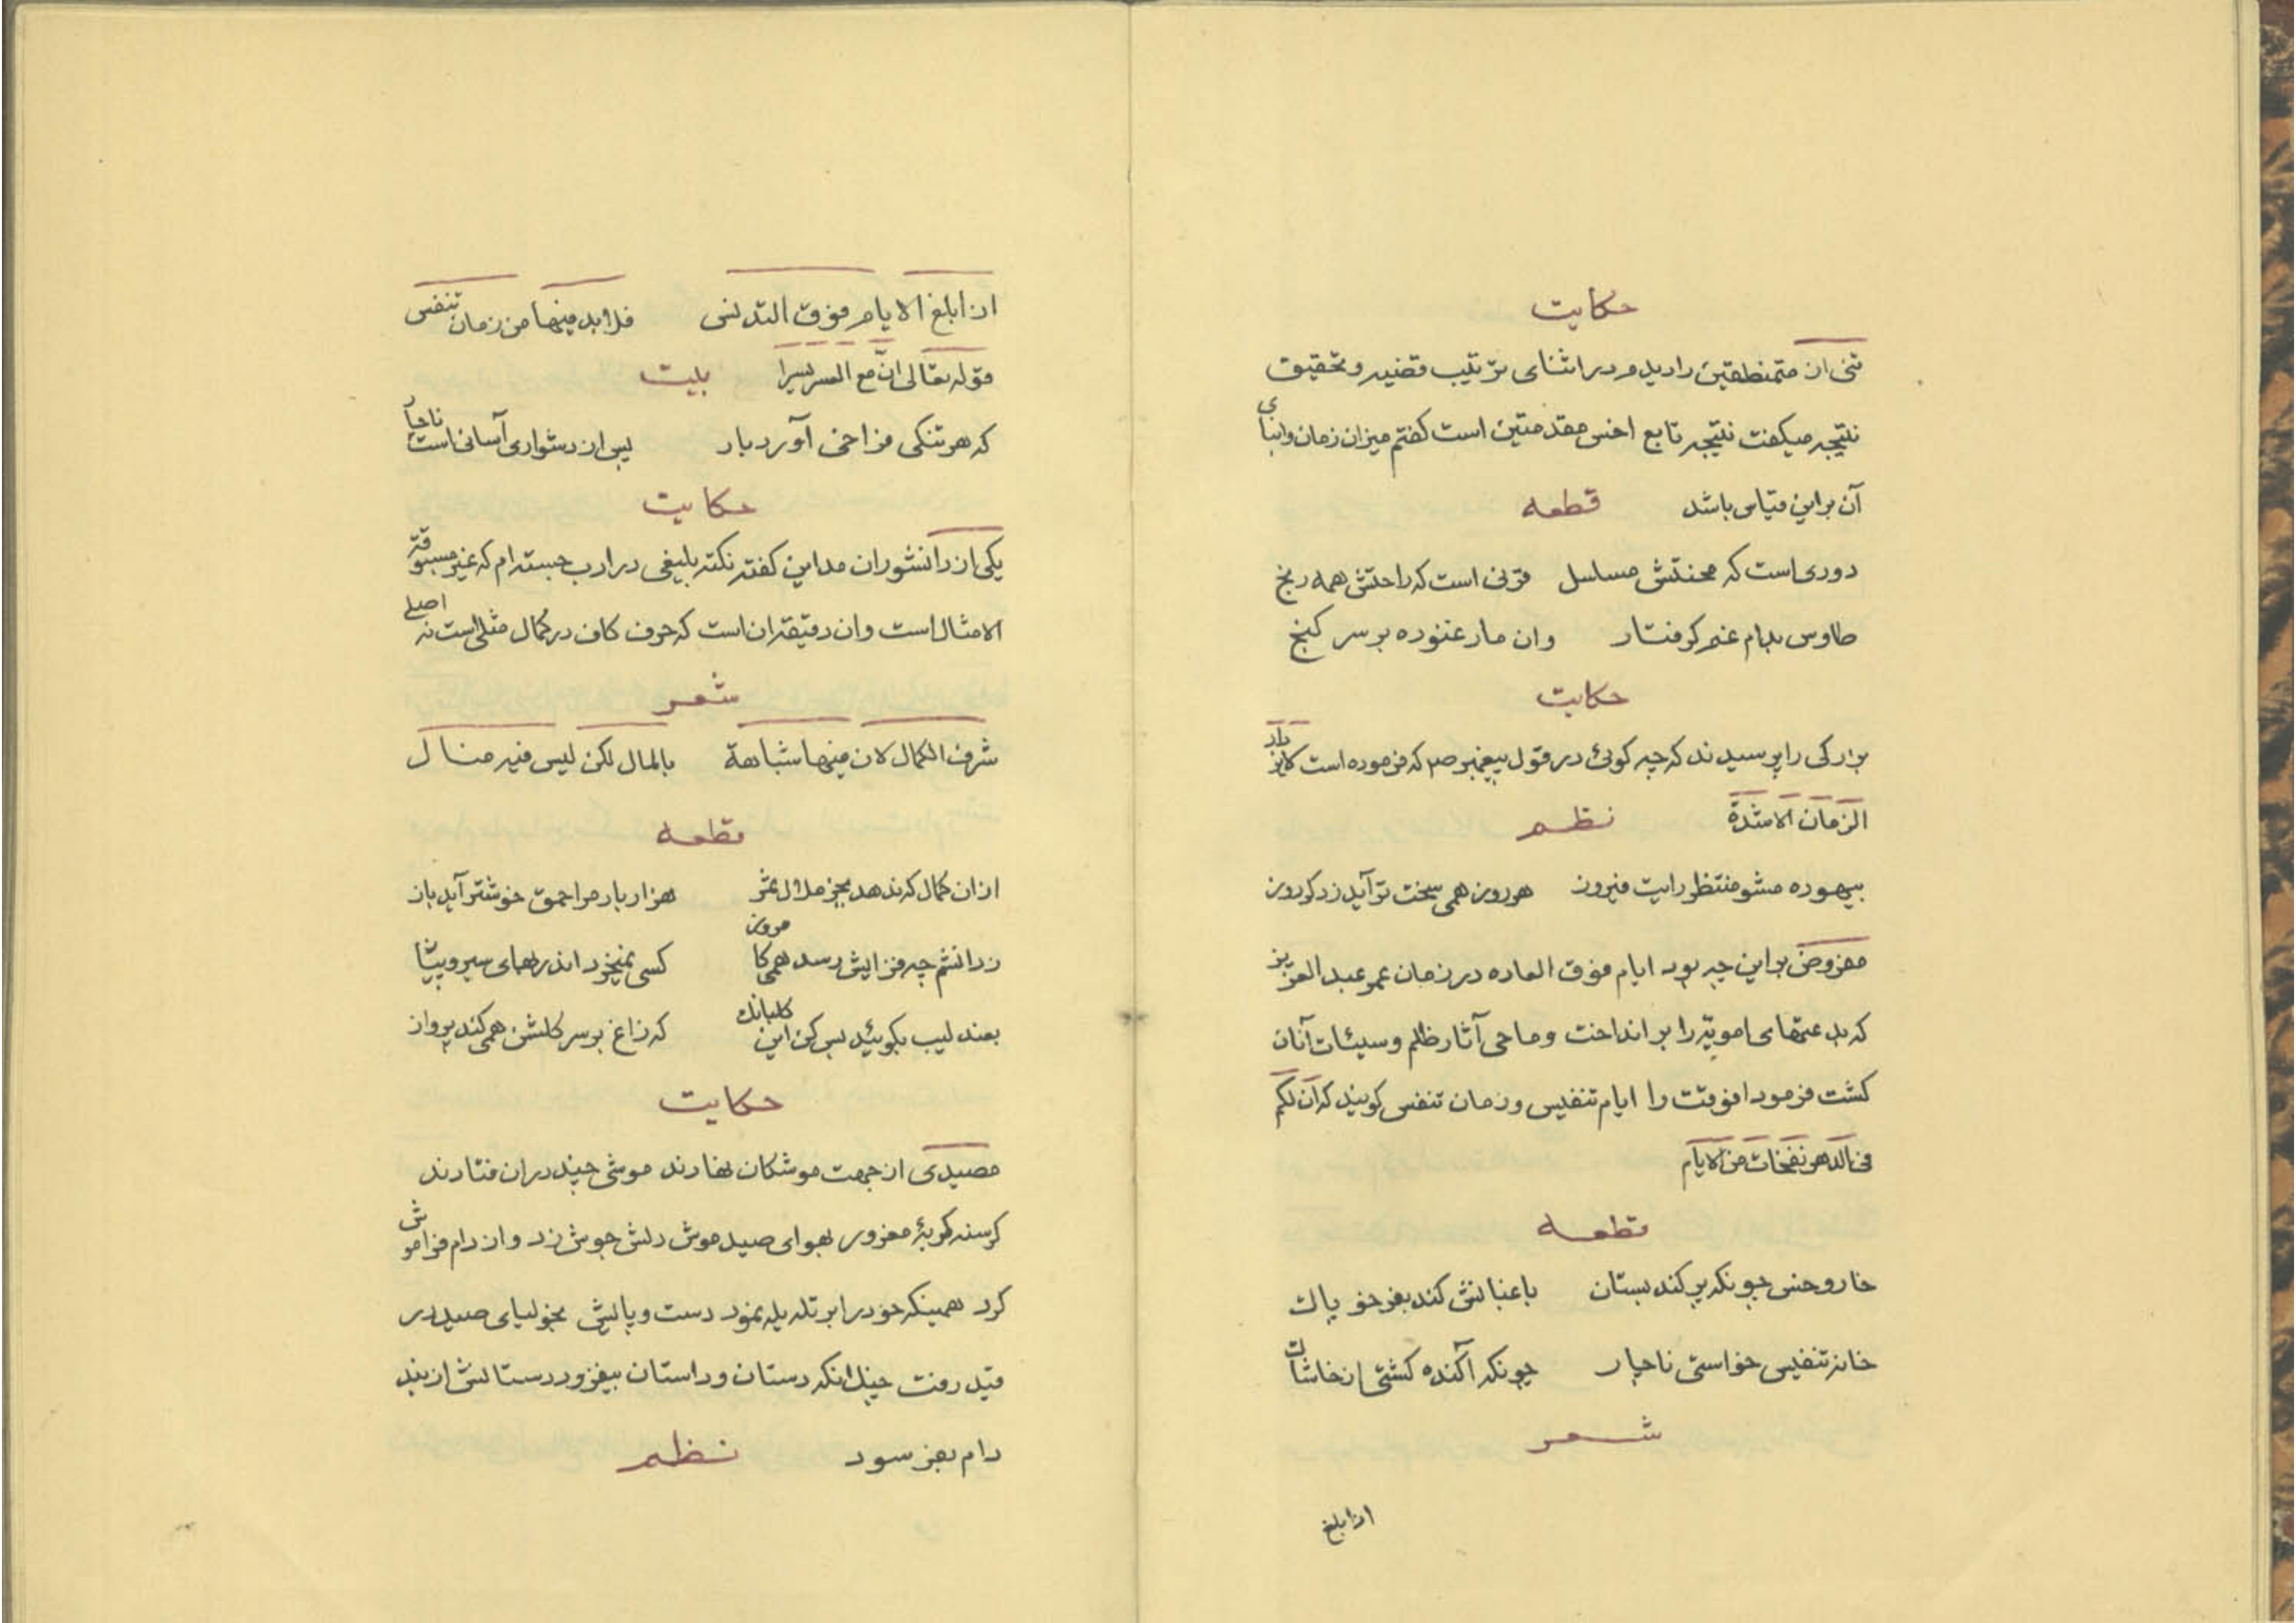 حکایت
تنی از متمنطقین را دیدم در اثنای ترتیب قضیه و تحقیق
نتیجه میکفت نتیجه تابع اخس مقدمتین است کفتم میزان زمان وابنای
آن بر این قیاس باشد قطعه
دوری است که محنتش مسلسل قرنی است که راحتش همه رنج
طاوس بدام غم کرفتار وان مار غنوده بر سر کنج
حکایت
بزرکی را پرسیدند که چه کوئی در قول پیغمبر ص که فرموده است لایزداد
الزمان الا شدة نظم
بیهوده مشو منتظر رایت فیروز هر روز همی سخت تر آید ز دکر روز
مفروض بر این چه بود ایام فوق العاده در زمان عمر عبد العزیز
که بدعتهای امویه را بر انداخت و ماحی آثار ظلم و سیئات آنان
کشت فرمود انوقت را ایام تنفیس و زمان تنفس کویند که ان لکم
فی الدهر نفحات من الایام
قطعه
خار و خس چونکه پر کند بستان باغبانش کند بغیر خو پاک
خانه تنفیس خواستی ناچار چونکه آکنده کشتی از خاشاک
شعر
اذا بلغ
اذا بلغ الایام فوق التدنی فلا بد فیها من زمان تنفس
قوله تعالی انّ مع العسر یسرا بیت
که هر تنکی فراخی آورد بار پس از دشواری آسانی است ناچار
حکایت
یکی از دانشوران مداین کفته نکته بلیغی در ادب جسته ام که غیر مسبوقة
الامثال است وان دقیقه ان است که حرف کاف در کمال مثلی است نه اصلی
شعر
شرف الکمال لان فیها شباهة بالمال لکن لیس فیه منال
قطعه
از ان کمال که ندهد بجز ملال ثمر هزار بار مرا حمق خوشتر آید باز
ز دانشم چه فزایش رسد همی کامروز کسی نمیخرد اندر بهای سیر و پیاز
بعندلیب بکوئید بس کن این کلبانک که زاغ بر سر کلشن همی کند پرواز
حکایت
مصیدی از جهت موشکان نهادند موشی چند دران فتادند
کرسنه کربۀ مغرور بهوای صید موش دلش جوش زد و از دام فراموش
کرد همینکه خود را بر تله یله نمود دست و پایش بخولیای صید در
قید رفت چندانکه دستان و داستان بیفزود دستانش از بند
دام بفرسود نظم